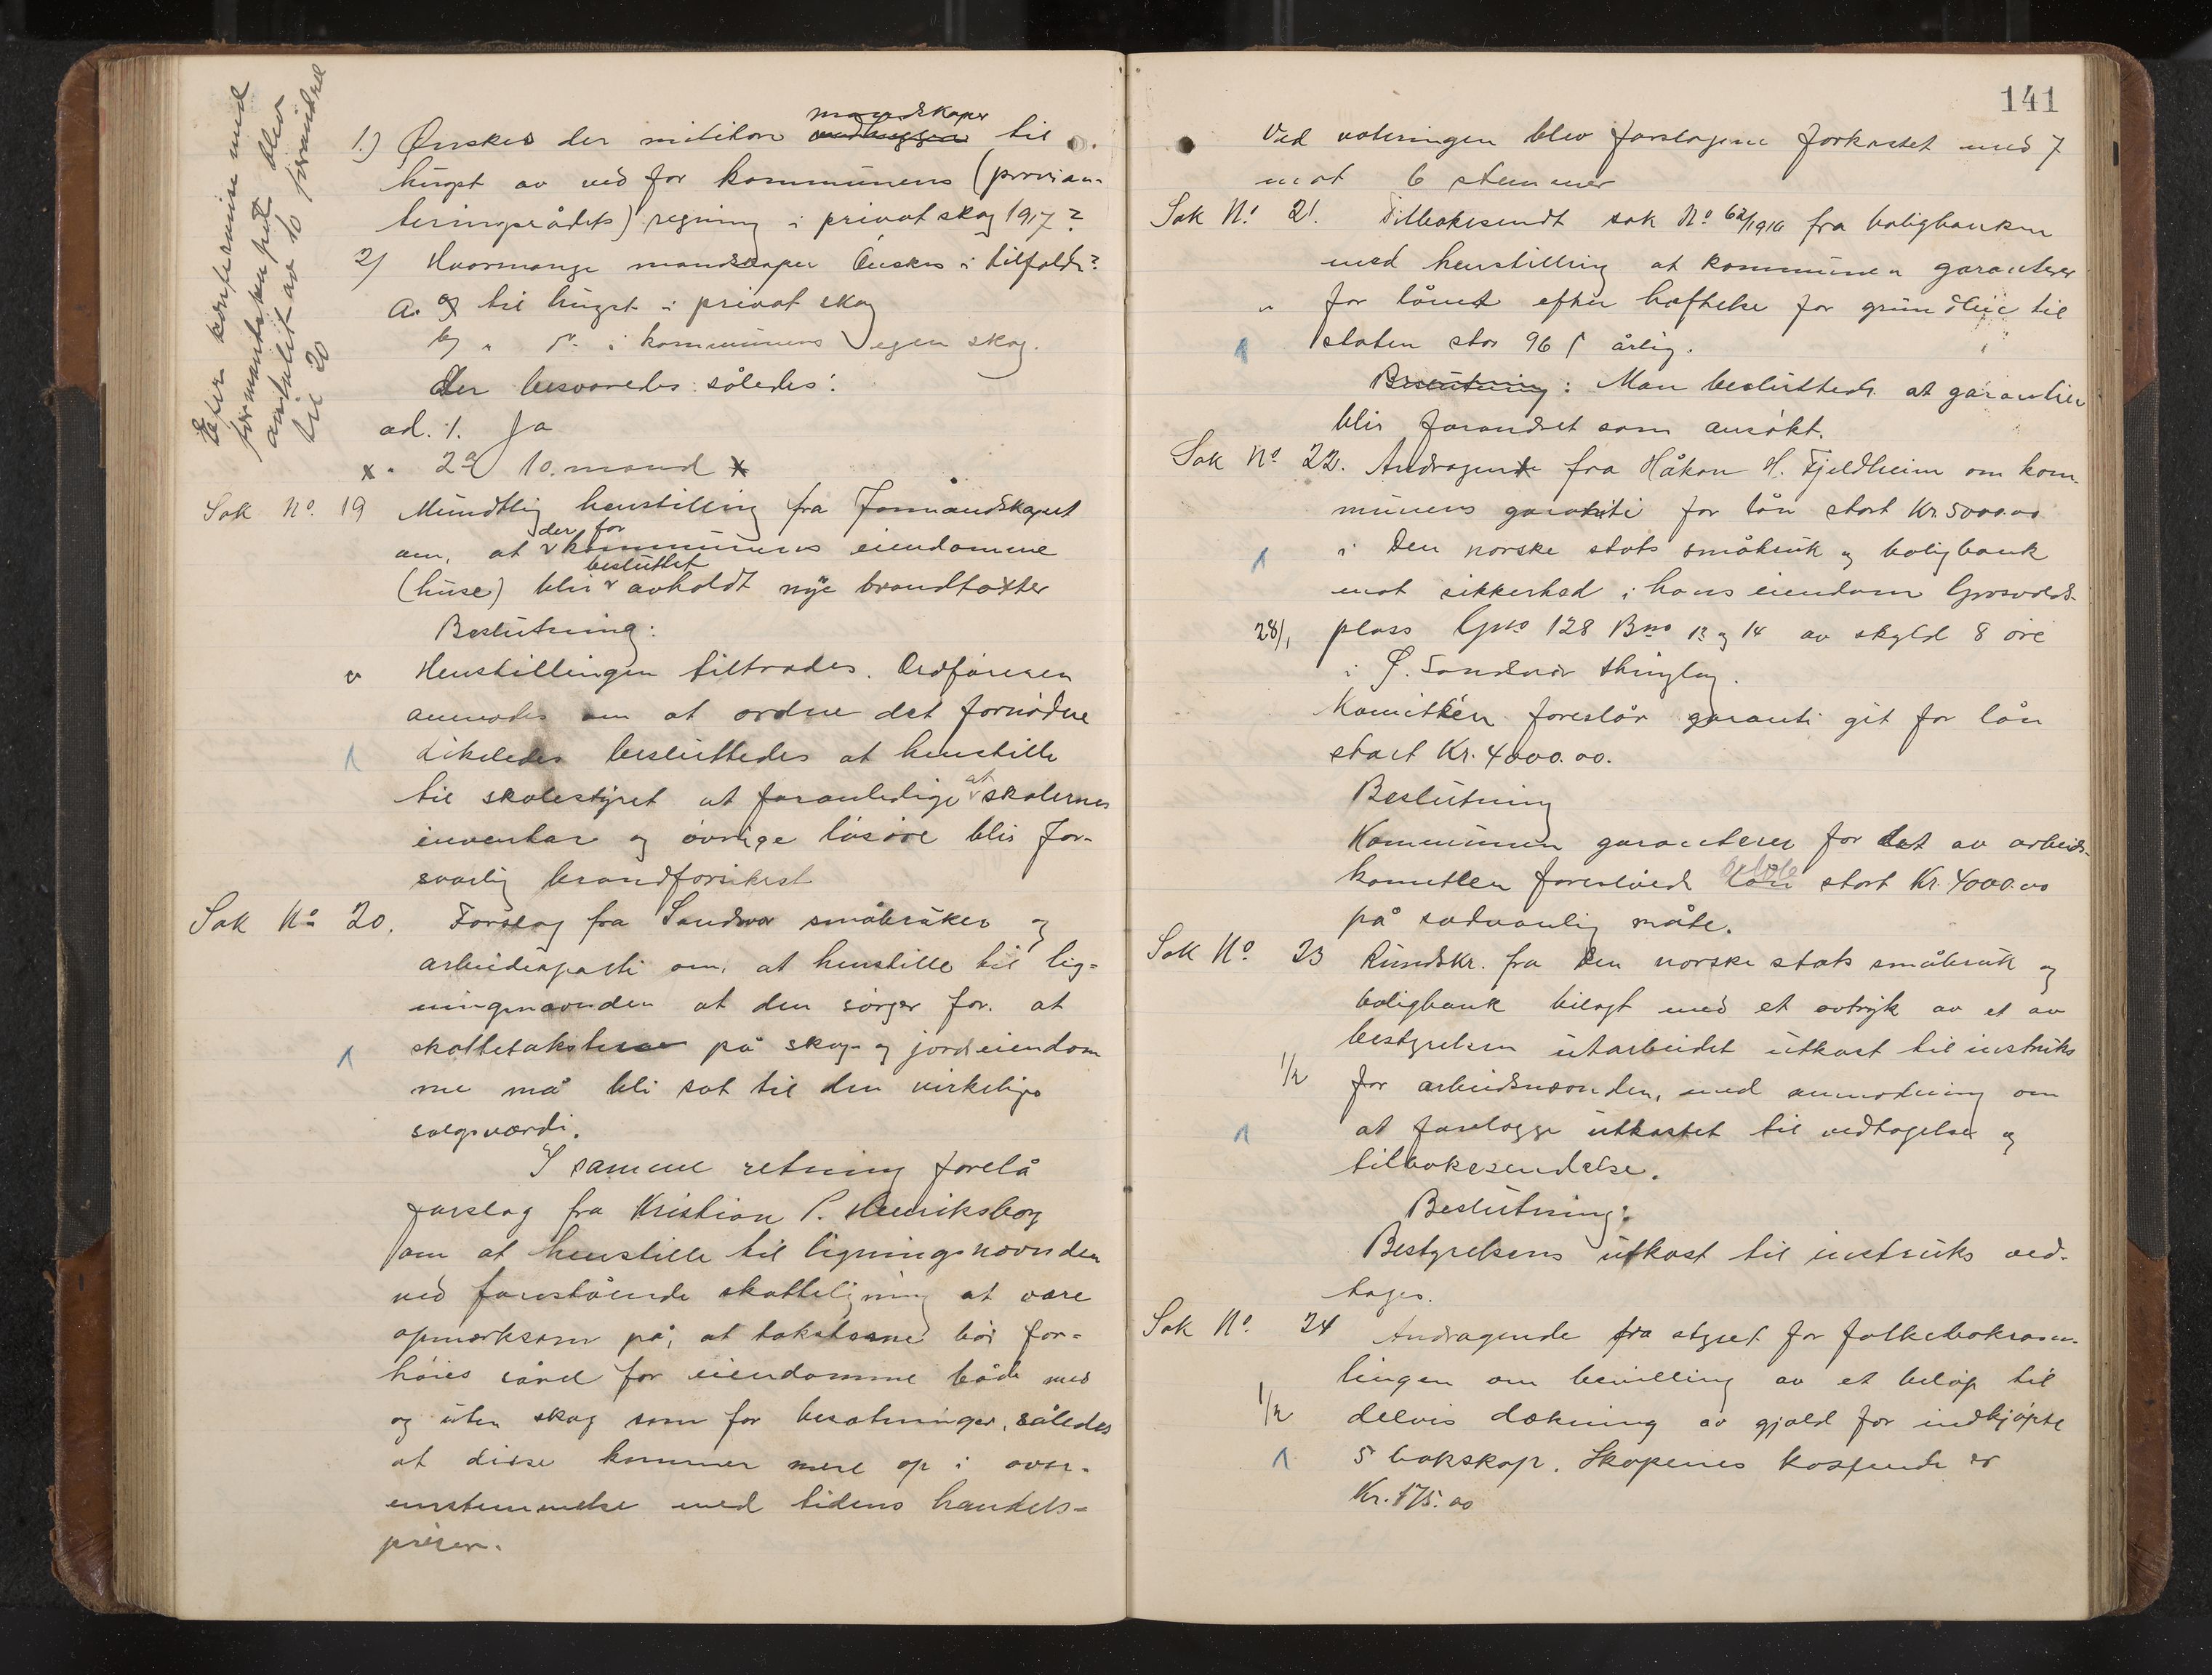 Efter konferanse med
formandskapet blev
antallet av 10 forandret
til 20
1.) Ønskes der militære mandskaper vedhuggere til
hugst av ved for kommunens (provian-
teringsrådets) regning i privat skog 1917?
2) Hvormange mandskaper ønskes i tilfælde?
a. til hugst i privat skog
b) " i kommunens egen skog.
Der besvaredes således:
ad. 1. Ja
x " 2a) 10. mand x
Sak No. 19 Mundtlig henstilling fra Formandskapet
om, at der for kommunens eiendomme
(huse) blir besluttet avholdt nye brandtakster
Beslutning:
Henstillingen tiltrædes. Ordføreren
anmodes om at ordne det fornødne
Likeledes besluttedes at henstille
til skolestyret at foranledige at skolernes
inventar og øvrige løsøre blir for-
svarlig brandforsikret
Sak No 20. Forslag fra Sandsvær småbruker og
arbeiderparti om, at henstille til lig-
ningsnævnden at den sørger for. at
skattetaksterne på skog- og jordeiendom
me må bli sat til den virkelige
salgsværdi.
I samme retning forelå
forslag fra Kristian P. Henriksborg
om at henstille til ligningsnævnden
ved forestående skatteligning at være
opmerksom på, at takstene bør for-
høies såvel for eiendomme både med
og uten skog som for besætninger, således
at disse kommer mere op i over-
ensstemmelse med tidens handels-
priser.
141
Ved voteringen blev forslagene forkastet med 7
mot 6 stemmer
Sak No. 21. Tilbakesendt sak No 62/1916 fra boligbanken
med henstilling at kommunen garanterer
for lånet efter hæftelse for grundleie til
staten stor 96 årlig.
Beslutning: Man besluttede at garantien
blir forandret som ansøkt.
Sak No 22. Andragende fra Håkon H. Fjeldheim om kom
munens garanti for lån stort Kr. 5000.00
i Den norske stats småbruk og boligbank
mot sikkerhed i hans eiendom Grosvolds-
28/1 plass Gno 128 Bno 13 og 14 av skyld 8 øre
i Ø. Sandsvær thinglag.
Komitéen foreslår garanti git for lån
stort Kr. 4000.00.
Beslutning
Kommunen garanterer for det av arbeids-
komitéen foreslåede lån stort Kr. 4000.00
på sedvanlig måte.
Sak No 23 Rundskr. fra Den norske stats småbruk og
boligbank bilagt med et avtryk av et av
bestyrelsen utarbeidet utkast til instruks
1/2 for arbeidsnævnden, med anmodning om
at forelægge utkastet til vedtagelse og
tilbakesendelse.
Beslutning:
Bestyrelsens utkast til instruks ved-
tages.
Sak No. 24 Andragende fra styret for folkeboksam-
lingen om bevilling av et beløp til
1/2 delvis dækning av gjæld for indkjøpte
5 bokskap. Skapenes kostende er
Kr. 175.00